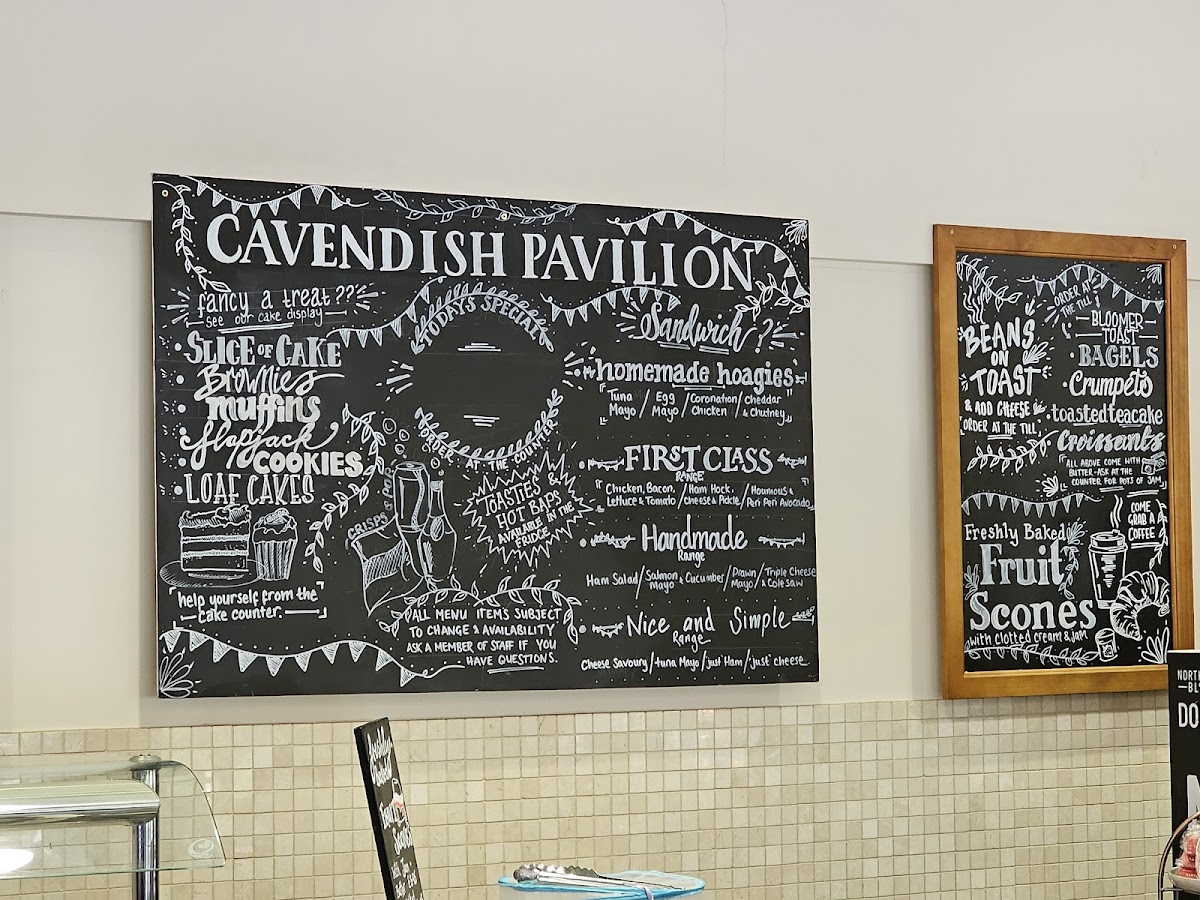 CAVENDISH PAVILION
fancy a treat??
see our cake display
SLICE OF CAKE
Brownies
muffins
flapjack
COOKIES
LOAF CAKES
help yourself from the
cake counter.
TODAYS SPECIAL
ORDER AT THE COUNTER
CRISPS & POP
TOASTIES &
HOT BAPS
AVAILABLE IN THE
FRIDGE
ALL MENU ITEMS SUBJECT
TO CHANGE & AVAILABILITY
ASK A MEMBER OF STAFF IF YOU
HAVE QUESTIONS.
Sandwich?
homemade hoagies
Tuna Mayo / Egg Mayo / Coronation Chicken / Cheddar & Chutney
FIRST CLASS
RANGE
Chicken, Bacon, Lettuce & Tomato / Ham Hock, Cheese & Pickle / Houmous & Peri Peri Avocado
Handmade
Range
Ham Salad / Salmon Mayo & Cucumber / Prawn Mayo / Triple Cheese & Coleslaw
Nice and Simple
Range
Cheese Savoury / tuna Mayo / 'just' Ham / 'just' cheese
BEANS
ON
TOAST
& ADD CHEESE
ORDER AT THE TILL
ORDER AT
THE TILL
BLOOMER
TOAST
BAGELS
Crumpets
toasted teacake
Croissants
ALL ABOVE COME WITH
BUTTER - ASK AT THE
COUNTER FOR POTS OF JAM
Freshly Baked
Fruit
Scones
with clotted cream & jam
COME
GRAB A
COFFEE
NORTH
DO